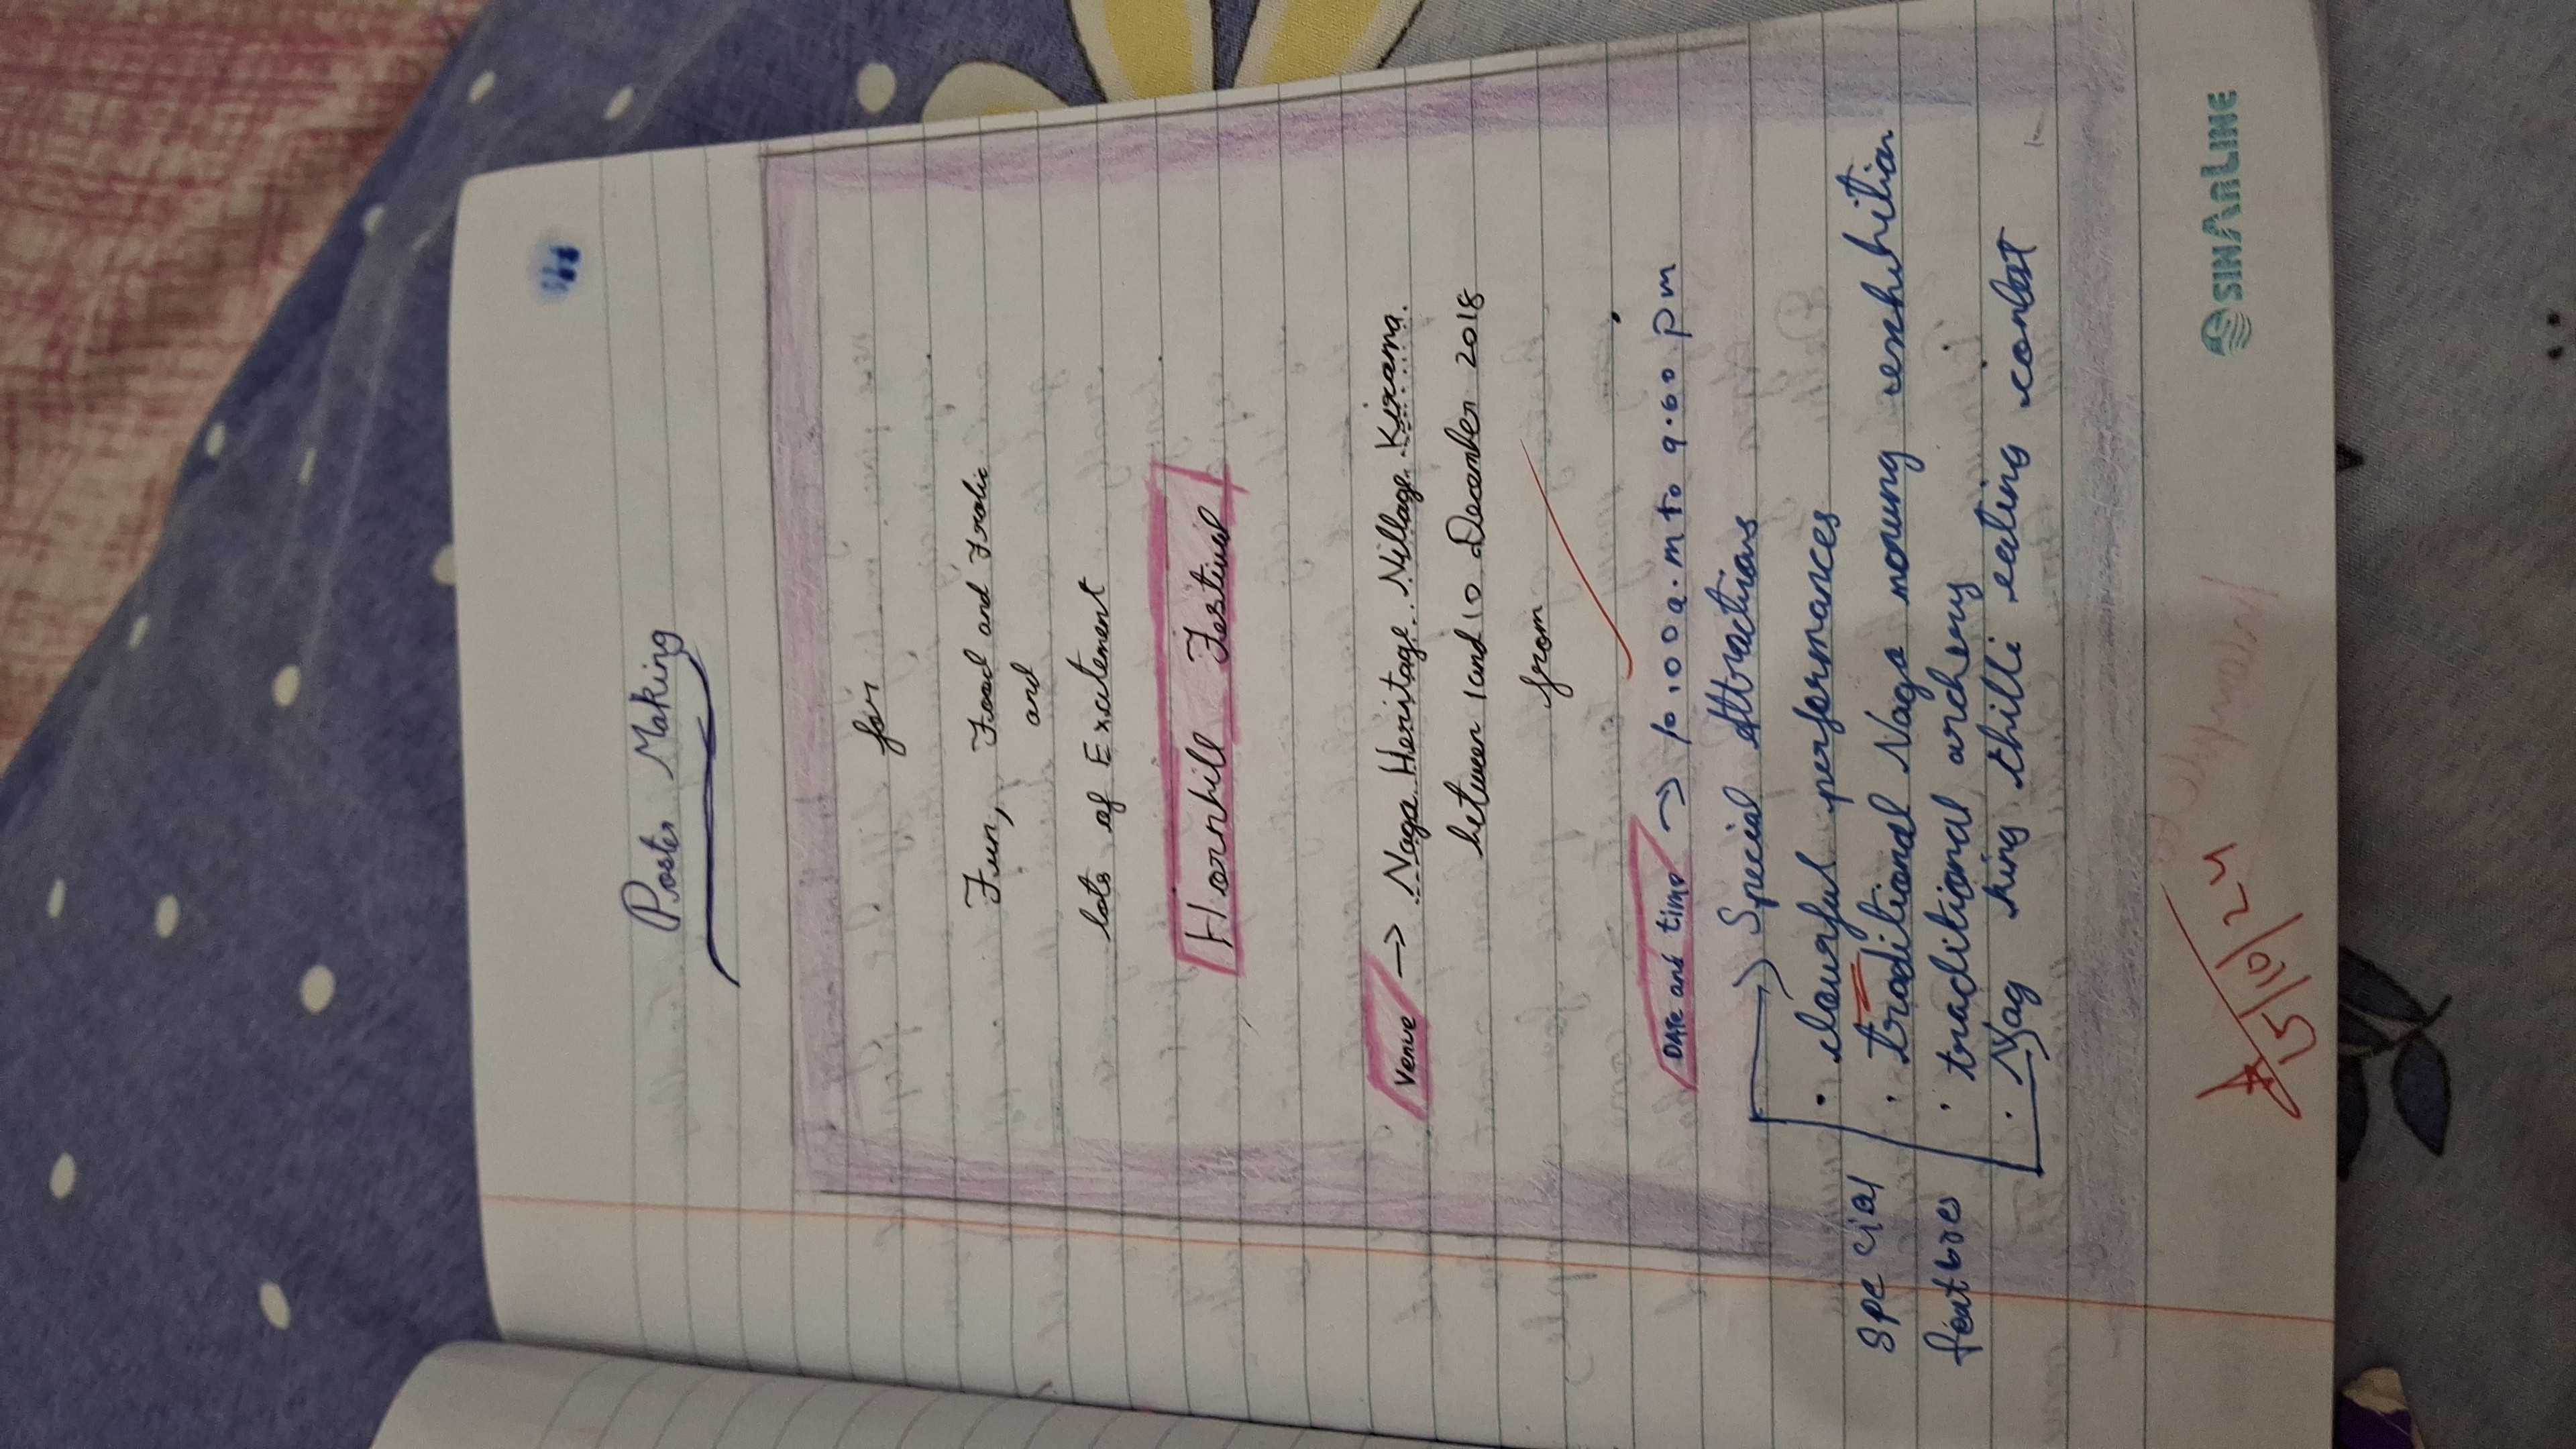 Poster Making
for
Fun, Food and Frolic
and
lots of Excitement
Hornbill Festival
Venue → Naga Heritage Village Kixama.
between 1 and 10 December 2018
from
Date and time → 10.00 a.m to 9.00 pm
→ Special Attractions
Special features
• clourful performances
• traditional Naga morung exhibition
• traditional archery
• Nag king chilli eating contest
15/10/24
SINARLINE